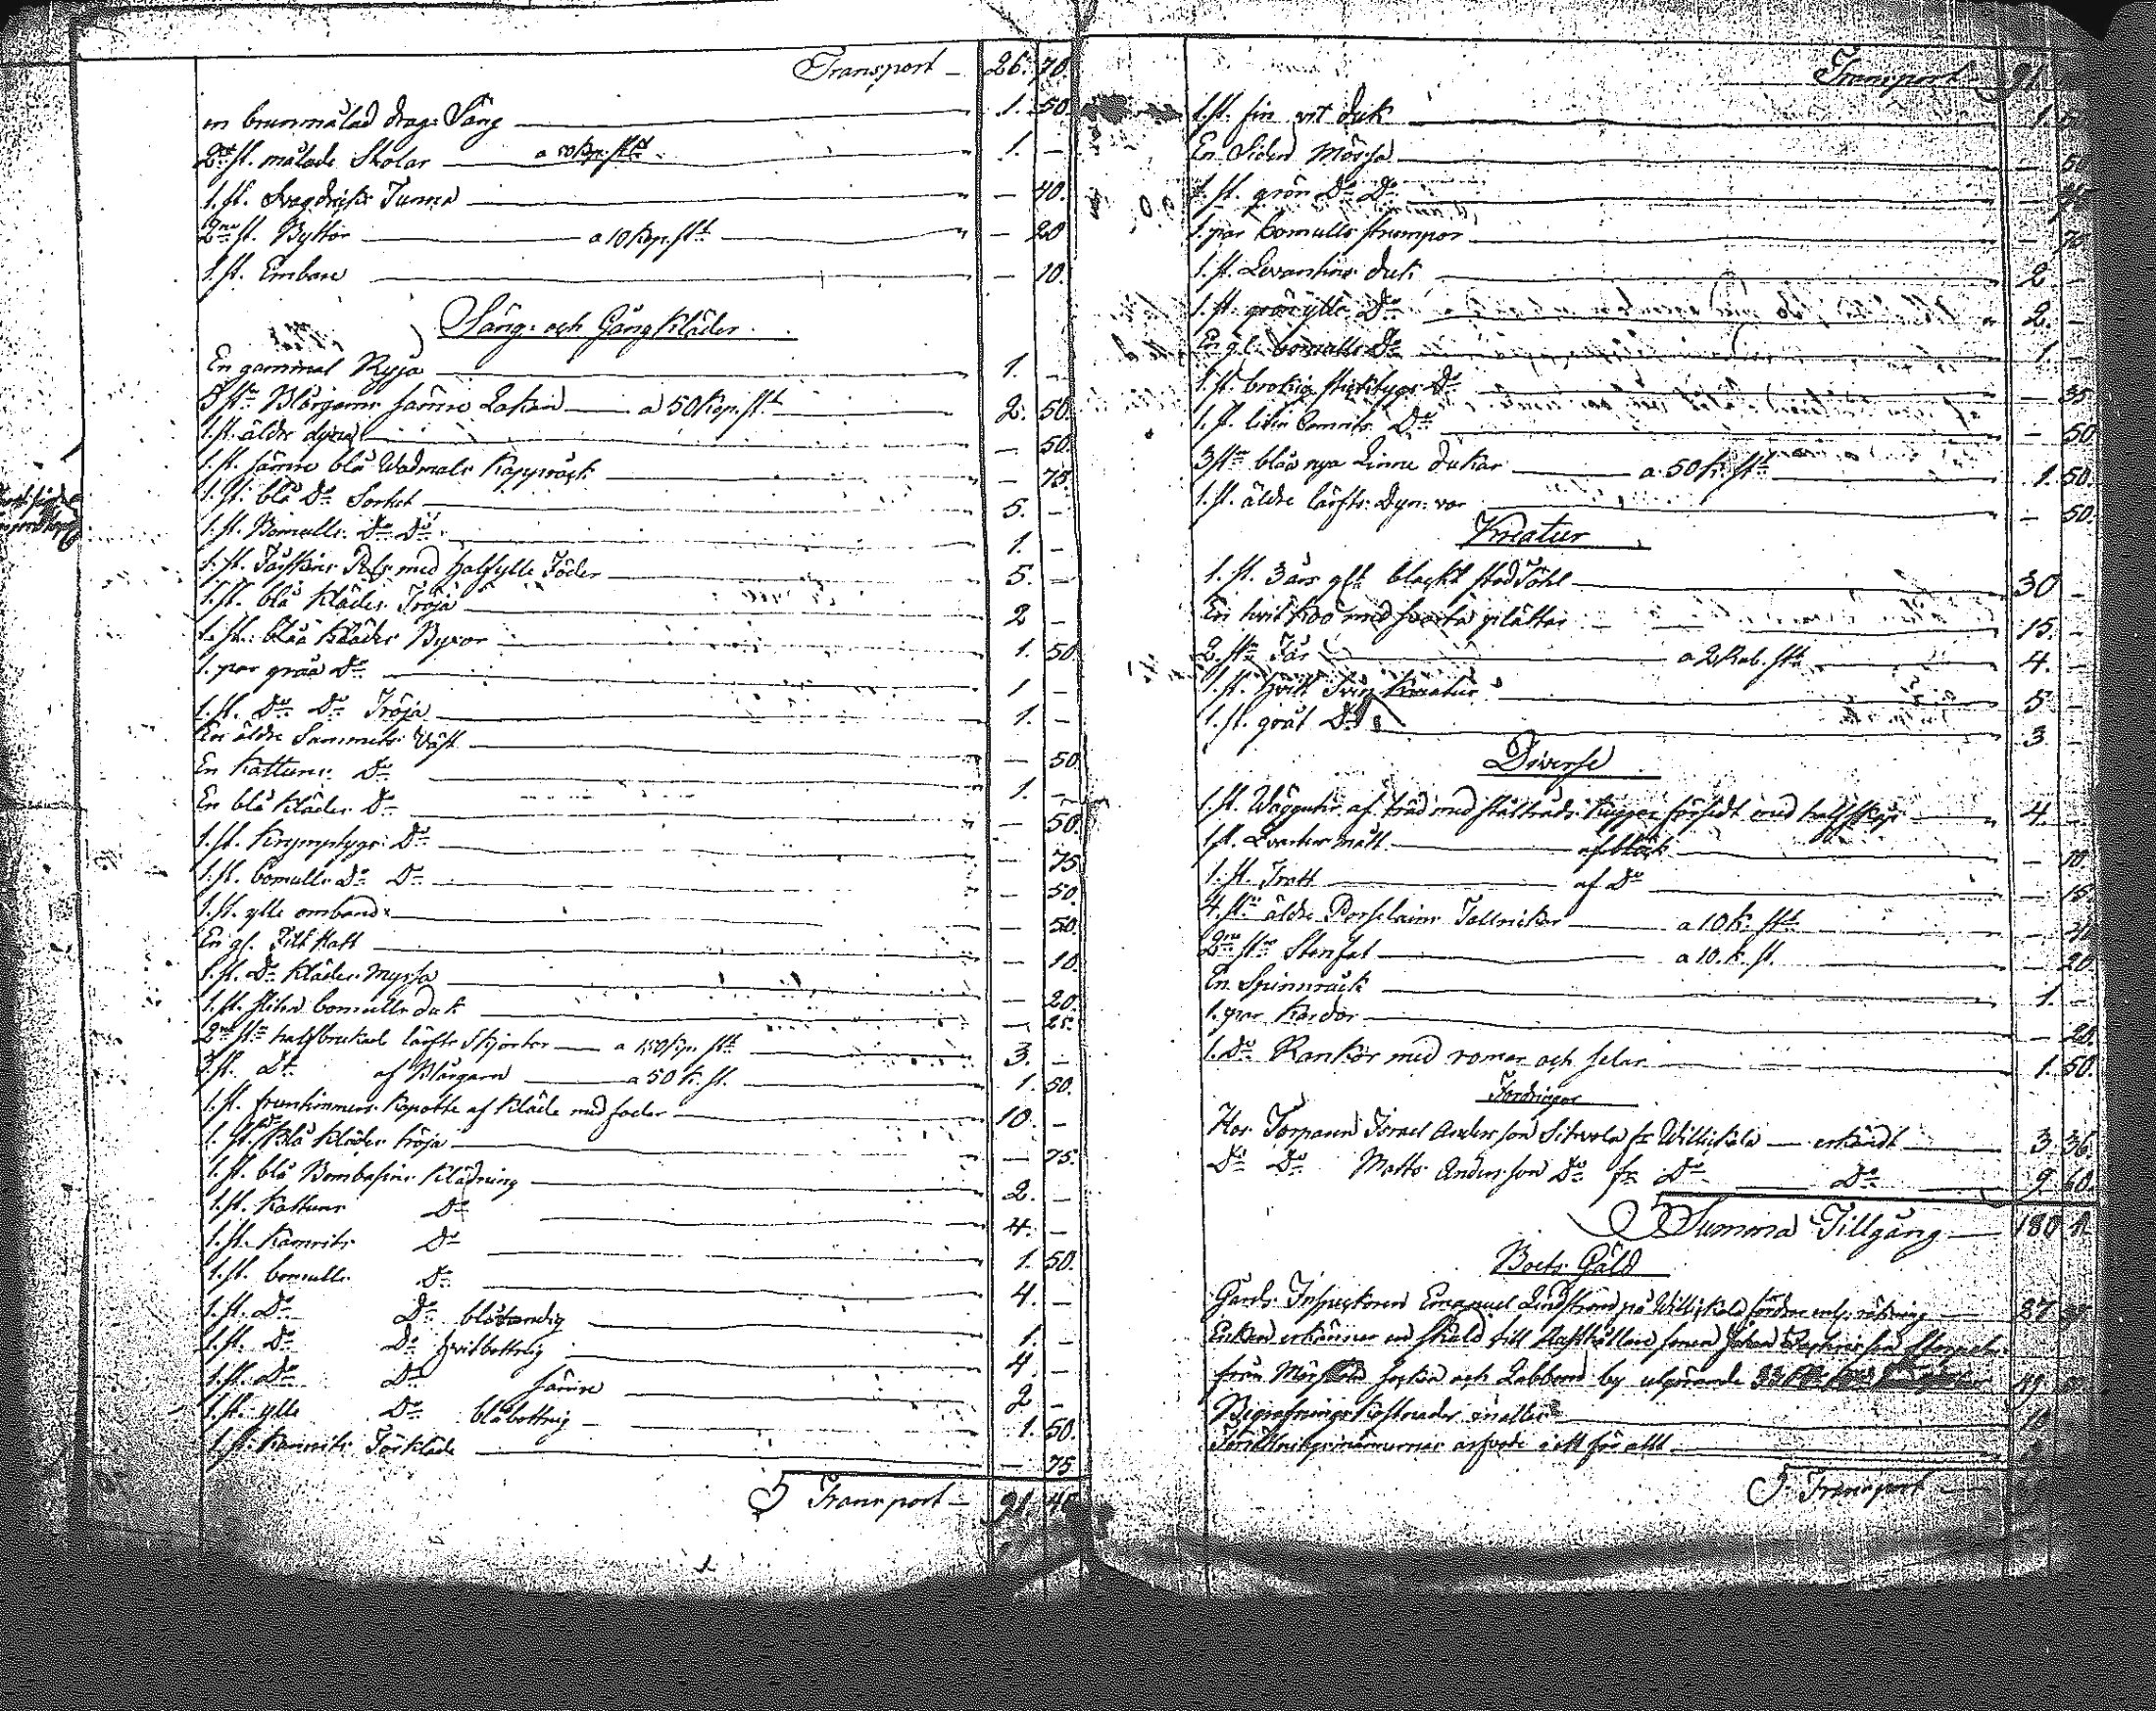 Transport — 26. 70.
en brunmålad drag: Säng — 1. 50.
2ne st. målade Stolar — a 50 Kop. st. — 1. —
1. st. Svagdricks Tunna — 40.
2ne st. Byttor — a 10 Kop. st. — 20
1. st. Embare — 10.
Säng- och Gångkläder.
En gammal Ryja — 1. —
5 st. Blårgarns sämre Lakan — a 50 Kop. st. — 2. 50.
1. st. äldre dyna — 50.
1. st. sämre blå Wadmals Kapprock — 75.
1. st. blå Do Sortut — 5. —
1. st. Bomulls Do Do — 1. —
1. st. Fårskins Pels med halfylle Foder — 5. —
1. st. blå Klädes Tröja — 2 —
1. st. blåa Klädes Byxor — 1. 50
1. par gråa Do — 1 —
1. st. Do Do Tröja — 1. —
En äldre Sammets Väst — 50.
En Kattuns Do — 1. —
En blå Klädes Do — 50.
1. st. Krymptygs Do — 75
1. st. bomulls Do Do — 50
1. st. ylle omband — 50.
En gl. Filt Hatt — 10.
1. st. Do Klädes Myssa — 20.
1. st. sliten bomulls Duk — 25.
2ne st. halfbrukad lärfts Skjortor — a 1,50 Kop. st. — 3. —
3. st. Dt. af Blårgarn — a 50 K. st. — 1. 50.
1. st. fruntimmers Kapotte af Kläde med foder — 10. —
1. st. Blå Klädes tröja — 75.
1. st. blå Bombasins Klädning — 2. —
1. st. Kattuns Do — 4. —
1. st. Kamrits Do — 1. 50.
1. st. bomulls Do — 4. —
1. st. Do Do blårandig — 1. —
1. st. Do Do hvitbottnig — 4. —
1. st. Do Do sämre — 2 —
1. st. ylle Do blåbottnig — 1. 50.
1. st. Kamrits Förkläde — 75
Transport — 91. 40
Transport — 91.
1. st. fin vit duk — 1.
En Siden Mössa — 50
1. st. grön Do Do
1. par bomulls strumpor — 75
1. st. Levantins duk — 2 —
1. st. grön ylle Do — 2. —
En gl. bomulls Do — 1. —
1. st. brokig Do — 35
1. st. liten Camrits Do — 50.
3 st. blåa nya Linne dukar — a 50 K. st. — 1. 50.
1. st. äldre lärfts Dyn: var — 50.
Kreatur
1. st. 3 års gl. blackt stod Föhl — 30 —
En hvit Koo med svarta plättar — 15. —
2. st. Får — a 2 Rub. st. — 4. —
1. st. hvitt Svin Kreatur — 5 —
1. st. grått Do — 3 —
Diverse
1. st. Wägguhr af träd med ståltråds — 4. —
1. st. Qvarters mått — af bläck — 10.
1. st. Tratt — af Do — 15.
4. st. äldre Porslains Tallrickar — a 10 K. st. — 40
2ne st. Stenfat — a 10. k. st. — 20.
En Spinnråck — 1. —
1. par Kardor — 20.
1. Do Rankor med romor och selar — 1. 50.
Fordringar
Hos Torparen Israel Andersson Sitvola fr. Willikkala — erkändt — 3. 36.
Do Do Matts Andersson Do fr. Do — Do — 9. 60.
Summa Tillgång — 180
Boets Gäld
Gårds Inspektoren Emanuel Lindström på Willikkala fordrar enl. räkning — 37
Enkan erkänner en skuld till sonen Johan
från socken och Labbom by utgörande
Begrafnings Kostnader
arfvode i ett för allt
Transport —